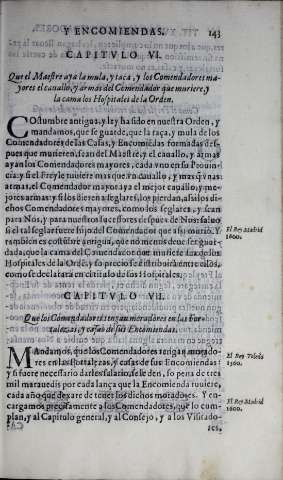 Y ENCOMIENDAS. 143
CAPITVLO VI.
Que el Maestre aya la mula, y taça, y los Comendadores ma-
yores el cauallo, y armas del Comendador que muriere, y
la cama los Hospitales de la Orden.
COstumbre antigua, y ley ha sido en nuestra Orden, y
mandamos, que se guarde, que la taça, y mula de los
Comendadores de las Casas, y Encomiẽdas formadas des-
pues que murieren, sean del Maestre, y el cauallo, y armas
ayan los Comendadores mayores, cada vno en su Prouin-
cia; y si el Freyle tuuiere mas que vn cauallo, y mas que vnas
armas, el Comendador mayor aya el mejor cauallo, y me-
jores armas: y si los dieren a seglares, los pierdan, assi los di-
chos Comendadores mayores, como los seglares, y sean
para Nos, y para nuestros successores despues de Nos: saluo
si el tal seglar fuere hijo del Comendador que assi murió. Y
tambien es costũbre antigua, que no menos deue ser guar-
dada, que la cama del Comendador que muriere sea de los
Hospitales de la Ordẽ, y su precio se distribuirà entre ellos,
como se declararà en el titulo de los Hospitales.
El Rey Madrid
1600.
CAPITVLO VII.
Que los Comendadores tengan moradores en las for-
talezas, y casas de sus Encomiendas.
MAndamos, que los Comendadores tengan morado-
res en las fortalezas, y casas de sus Encomiendas:
y si fuere necessario darles salario, se le den, so pena de tres
mil marauedis por cada lança que la Encomienda tuuiere,
cada año que dexare de tener los dichos moradores. Y en-
cargamos precisamente a los Comendadores, que lo cum-
plan, y al Capitulo general, y al Consejo, y a los Visitado-
res,
El Rey Toledo
1560.
El Rey Madrid
1600.